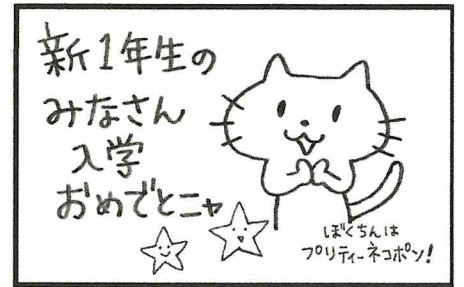 新1年生の
みなさん
入学
おめでとニャ
ぼくちんは
プリティーネコポン!